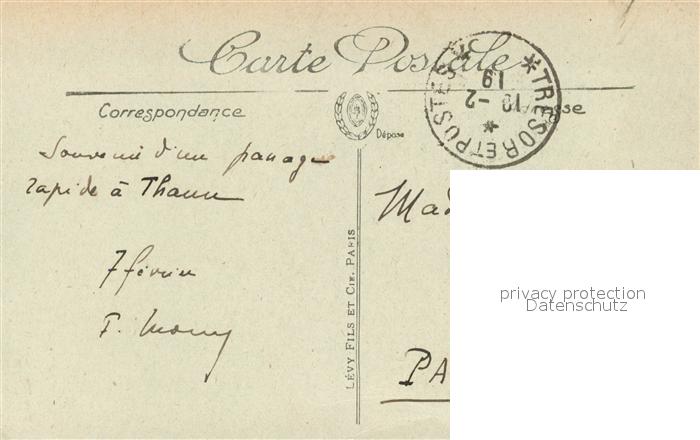 Carte Postale
Correspondance
Déposé
Souvenir d'un passage
rapide à Thann
7 février
F.
LÉVY FILS ET CIE, PARIS
* TRESOR ET POSTES *
10 -2
19
*
Mad
PA
privacy protection
Datenschutz